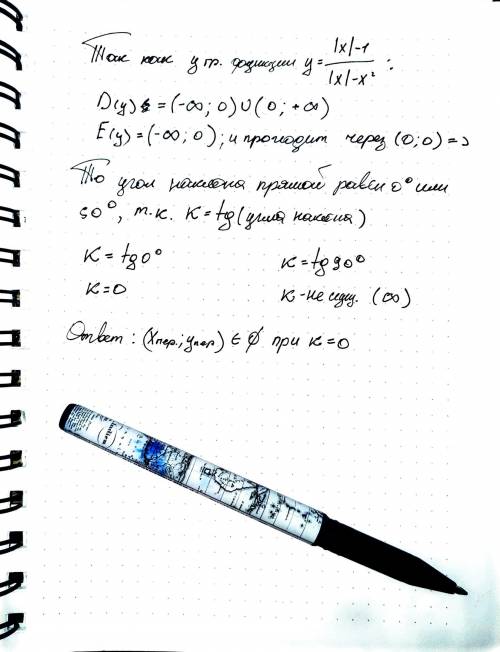 Так как у гр. функции y = |x|-1 / |x|-x² :
D(y) = (-∞; 0) ∪ (0; +∞)
E(y) = (-∞; 0); и проходит через (0; 0) =>
То угол наклона прямой равен 0° или
90°, т.к. K = tg(угла наклона)
K = tg 0° K = tg 90°
K = 0 K - не сущ. (∞)
Ответ: (xпер.; yпер) ∈ ∅ при K = 0